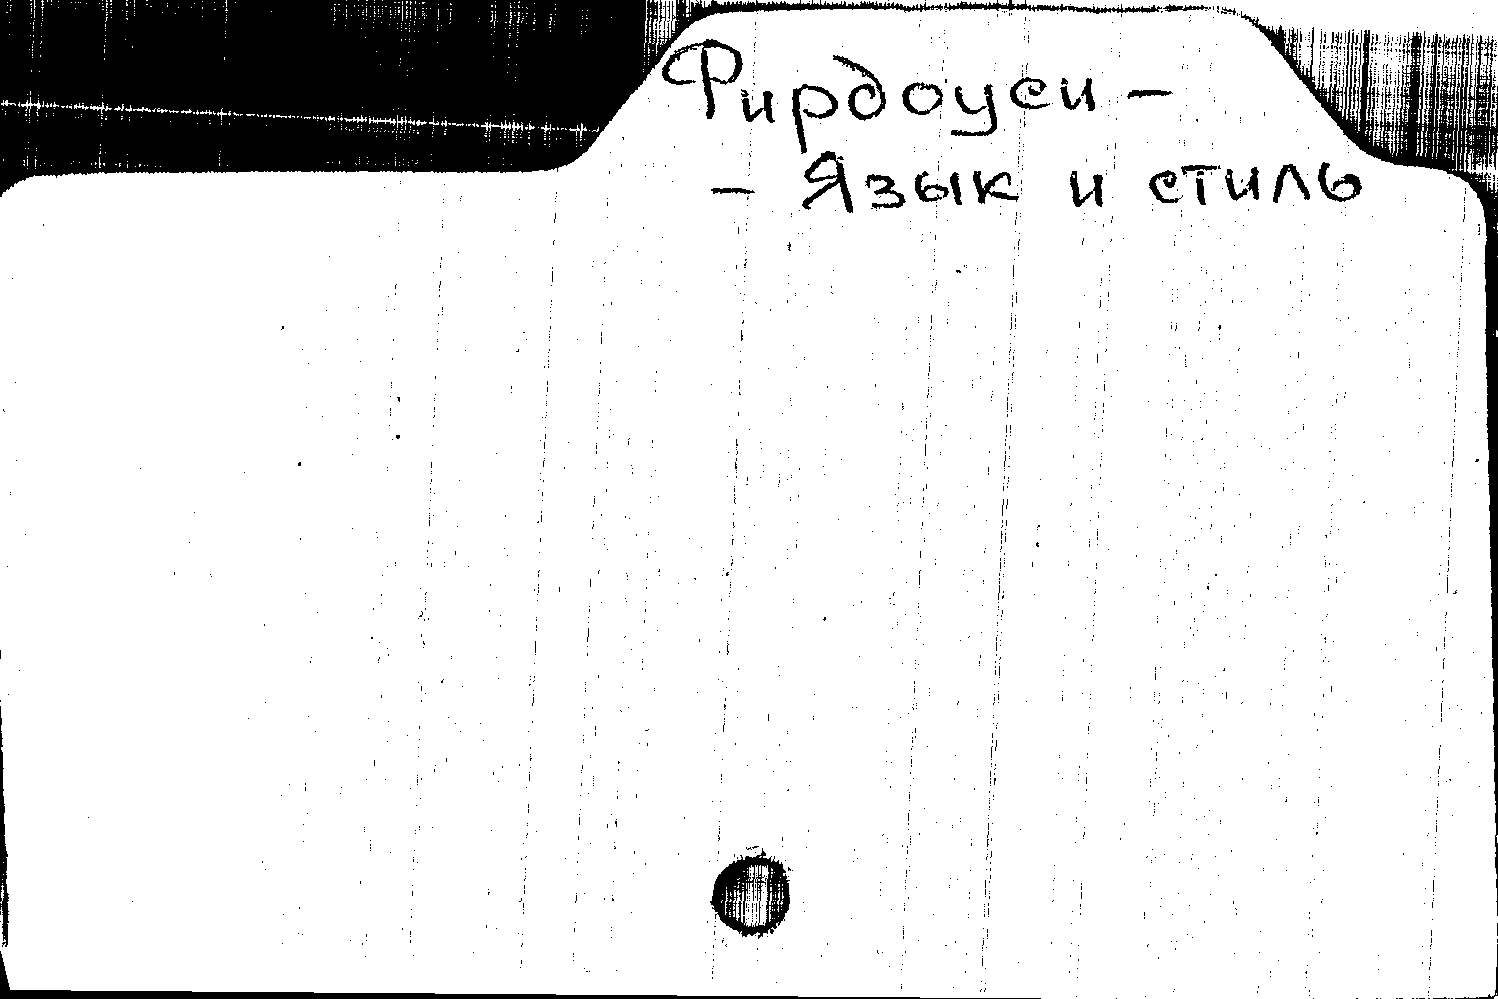 Фирдоуси –
– Язык и стиль